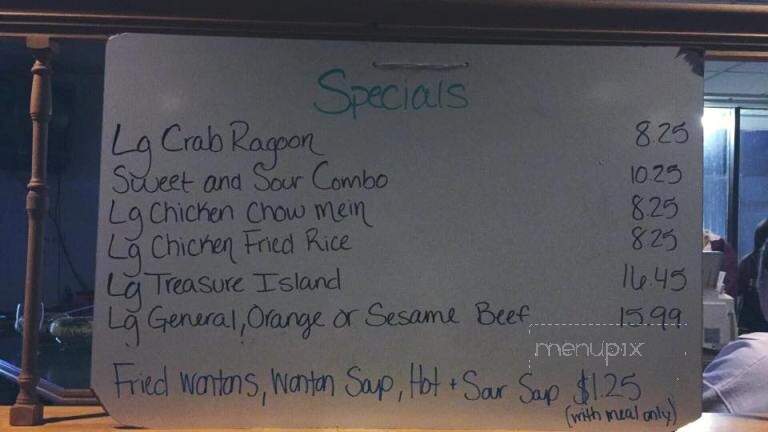 Specials
Lg Crab Ragoon 8.25
Sweet and Sour Combo 10.25
Lg Chicken Chow mein 8.25
Lg Chicken Fried Rice 8.25
Lg Treasure Island 16.45
Lg General, Orange or Sesame Beef 15.99
menupix
Fried Wontons, Wonton Soup, Hot + Sour Soup $1.25
(with meal only)